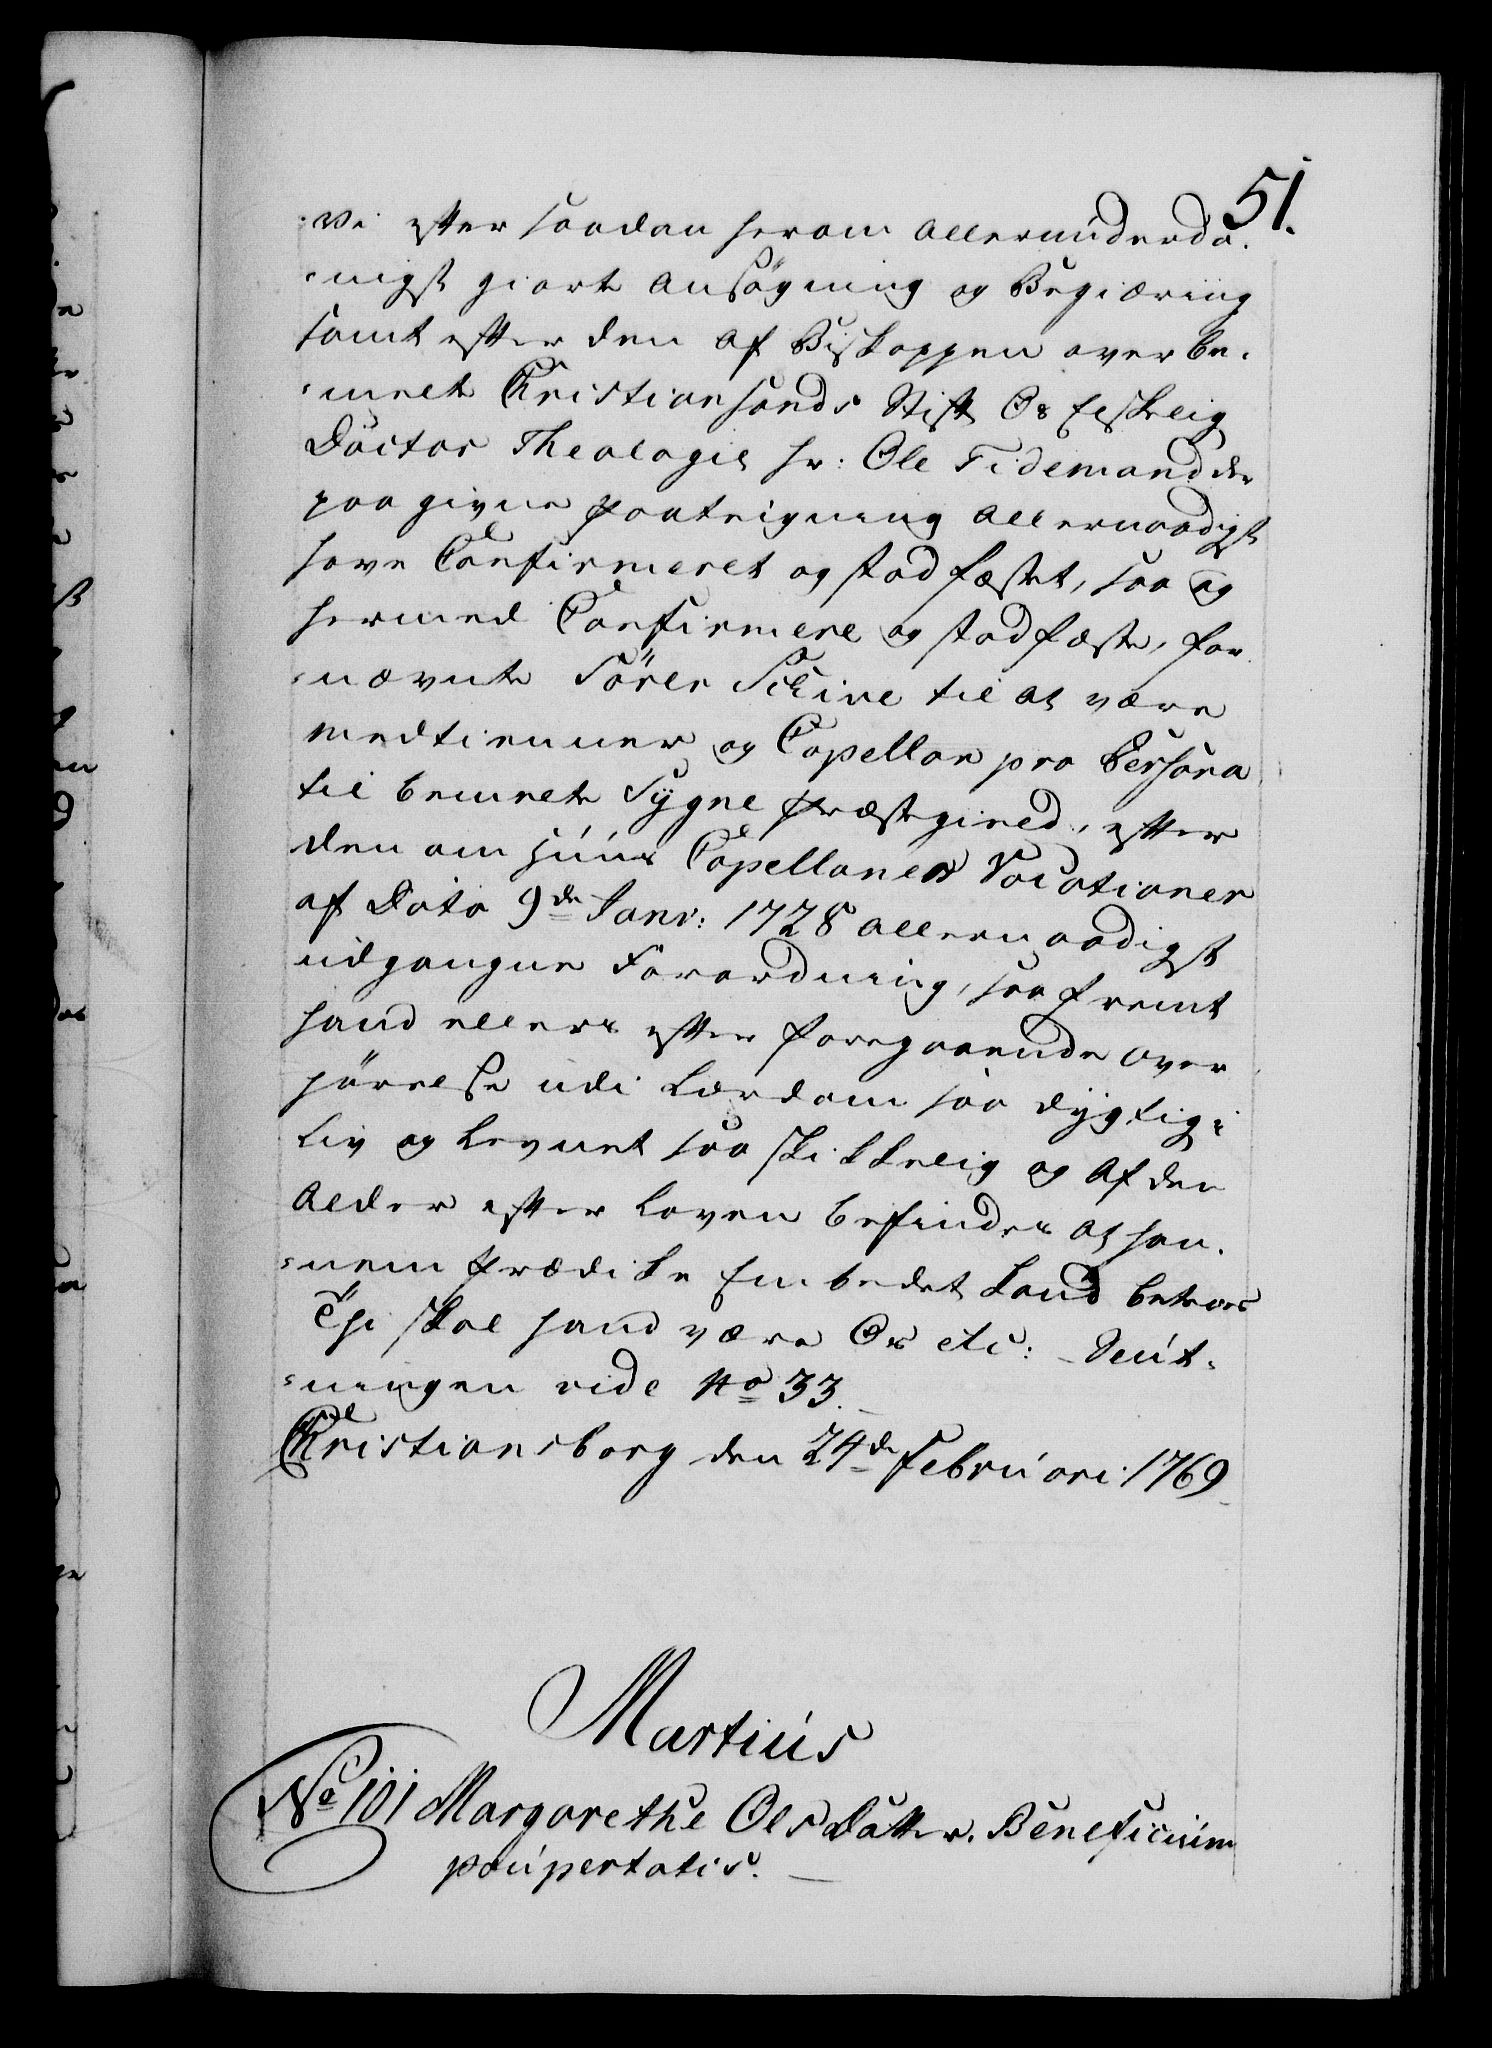 51.
Vi efter saadan herom allerunderda-
-nigst giorte Ansøgning og Begiæring
samt efter den af Biskoppen over be-
-melte Christiansands Stift Os Elskelig
Doctor Theologiæ Hr: Ole Tidemand der
paa givne Paategning allernaadigst
have Confirmeret og stadfæstet, saa og
hermed Confirmere og stadfæste, for
-nævnte Sören Schive til at være
Medtienner og Capellan pro Persona
til bemelte Sygne Præstegield, efter
den om huus Capellaners Vocationer
af Dato 9de Janv: 1728 allernaadigst
udgangne Forordning, saafremt
hand ellers efter foregaaende over
hörelse udi Lærdom saa dygtig i
Liv og Levnet saa skikkelig og af den
Alder efter Loven befindes at han-
-nem Prædike Embedet kand betroes
Thi skal hand være Os etc: Slut-
-ningen vide No 33.
Christiansborg den 24de Februari 1769
Martius
No 101 Margarethe Olsdatter. Beneficium
paupertatis.